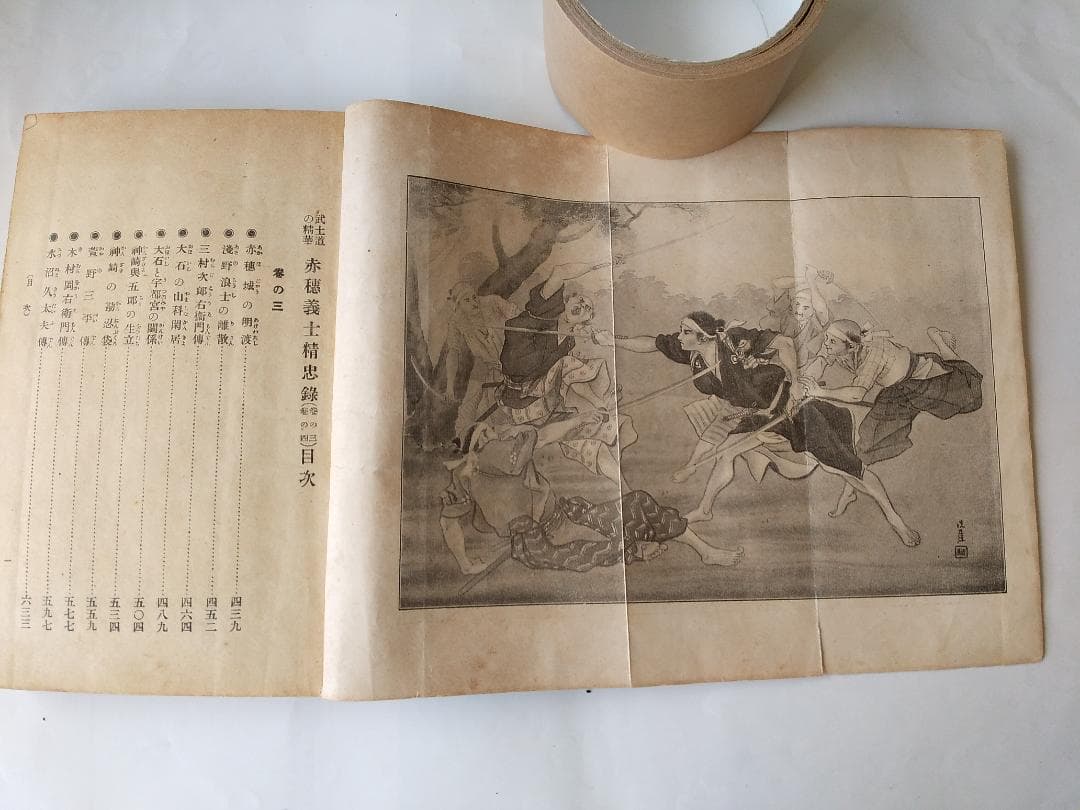 武士道の精華 赤穗義士精忠錄(卷の三 卷の四)目次
卷の三
赤穗城の明渡 四三九
淺野浪士の離散 四五二
三村次郎右衞門傳 四六四
大石の山科閑居 四八九
大石と宇都宮の關係 五〇四
神崎與五郎の生立 五三四
神崎の堪忍袋 五五九
萱野三平傳 五七七
木村岡右衞門傳 五九七
水沼久太夫傳 六三三
(目次) 一